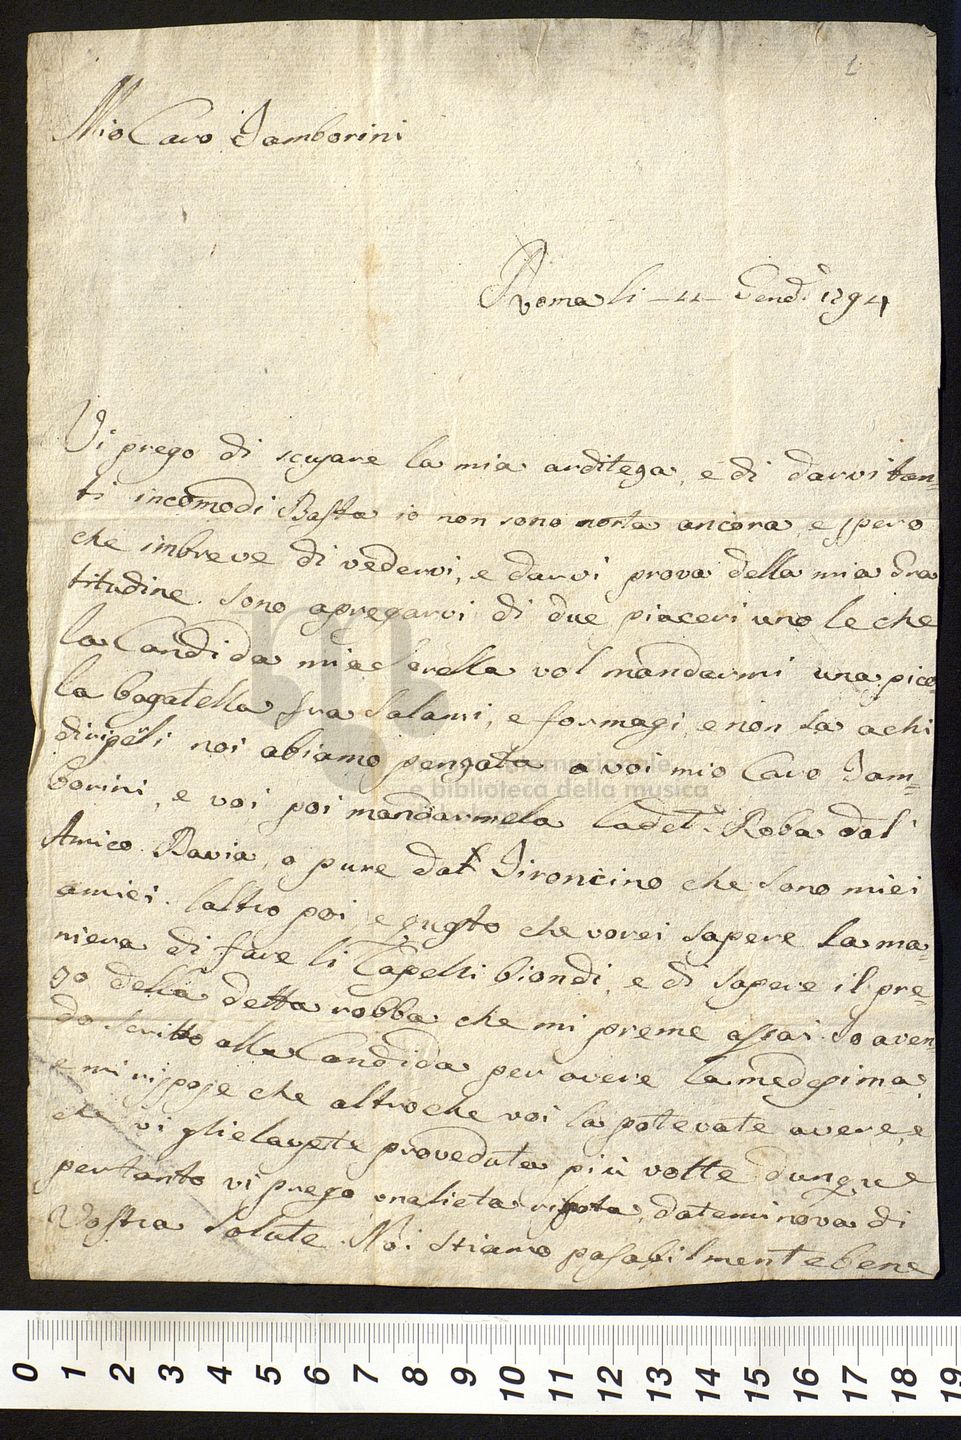 1
Mio Caro Tamborini
Roma li - 11 - Gend.o 1794
Vi prego di scusare la mia arditeza, e di darvi tan=
ti incomodi Basta io non sono morta ancora e spero
che imbreve di vedervi, e darvi prova della mia Gra
titudine. sono apregarvi di due piaceri uno le che
la Candida mia Sorella vol mandarmi una pico
la bagatella fra Salami, e formagi, e non sa achi
dirigerli noi abiamo penzata a voi mio Caro Tam=
borini, e voi poi mandarmela Ladet.a Roba dal
Amico Bavia, o pure dal Tironcino che sono miei
amici. laltro poi e questo che vorei sapere la ma=
niera di fare li Capelli biondi, e di sapere il pre=
zo della detta robba che mi preme assai. Io aven
do scritto alla Candida per avere la medesima,
e mi rispose che altro che voi la potevate avere, e
che vi glielavete proveduta più volte dunque
pertanto vi prego una lieta risposta, datemi nova di
Vostra Salute. Noi stiamo pasabilmente bene
museo internazionale
e biblioteca della musica
di bologna
0 1 2 3 4 5 6 7 8 9 10 11 12 13 14 15 16 17 18 19